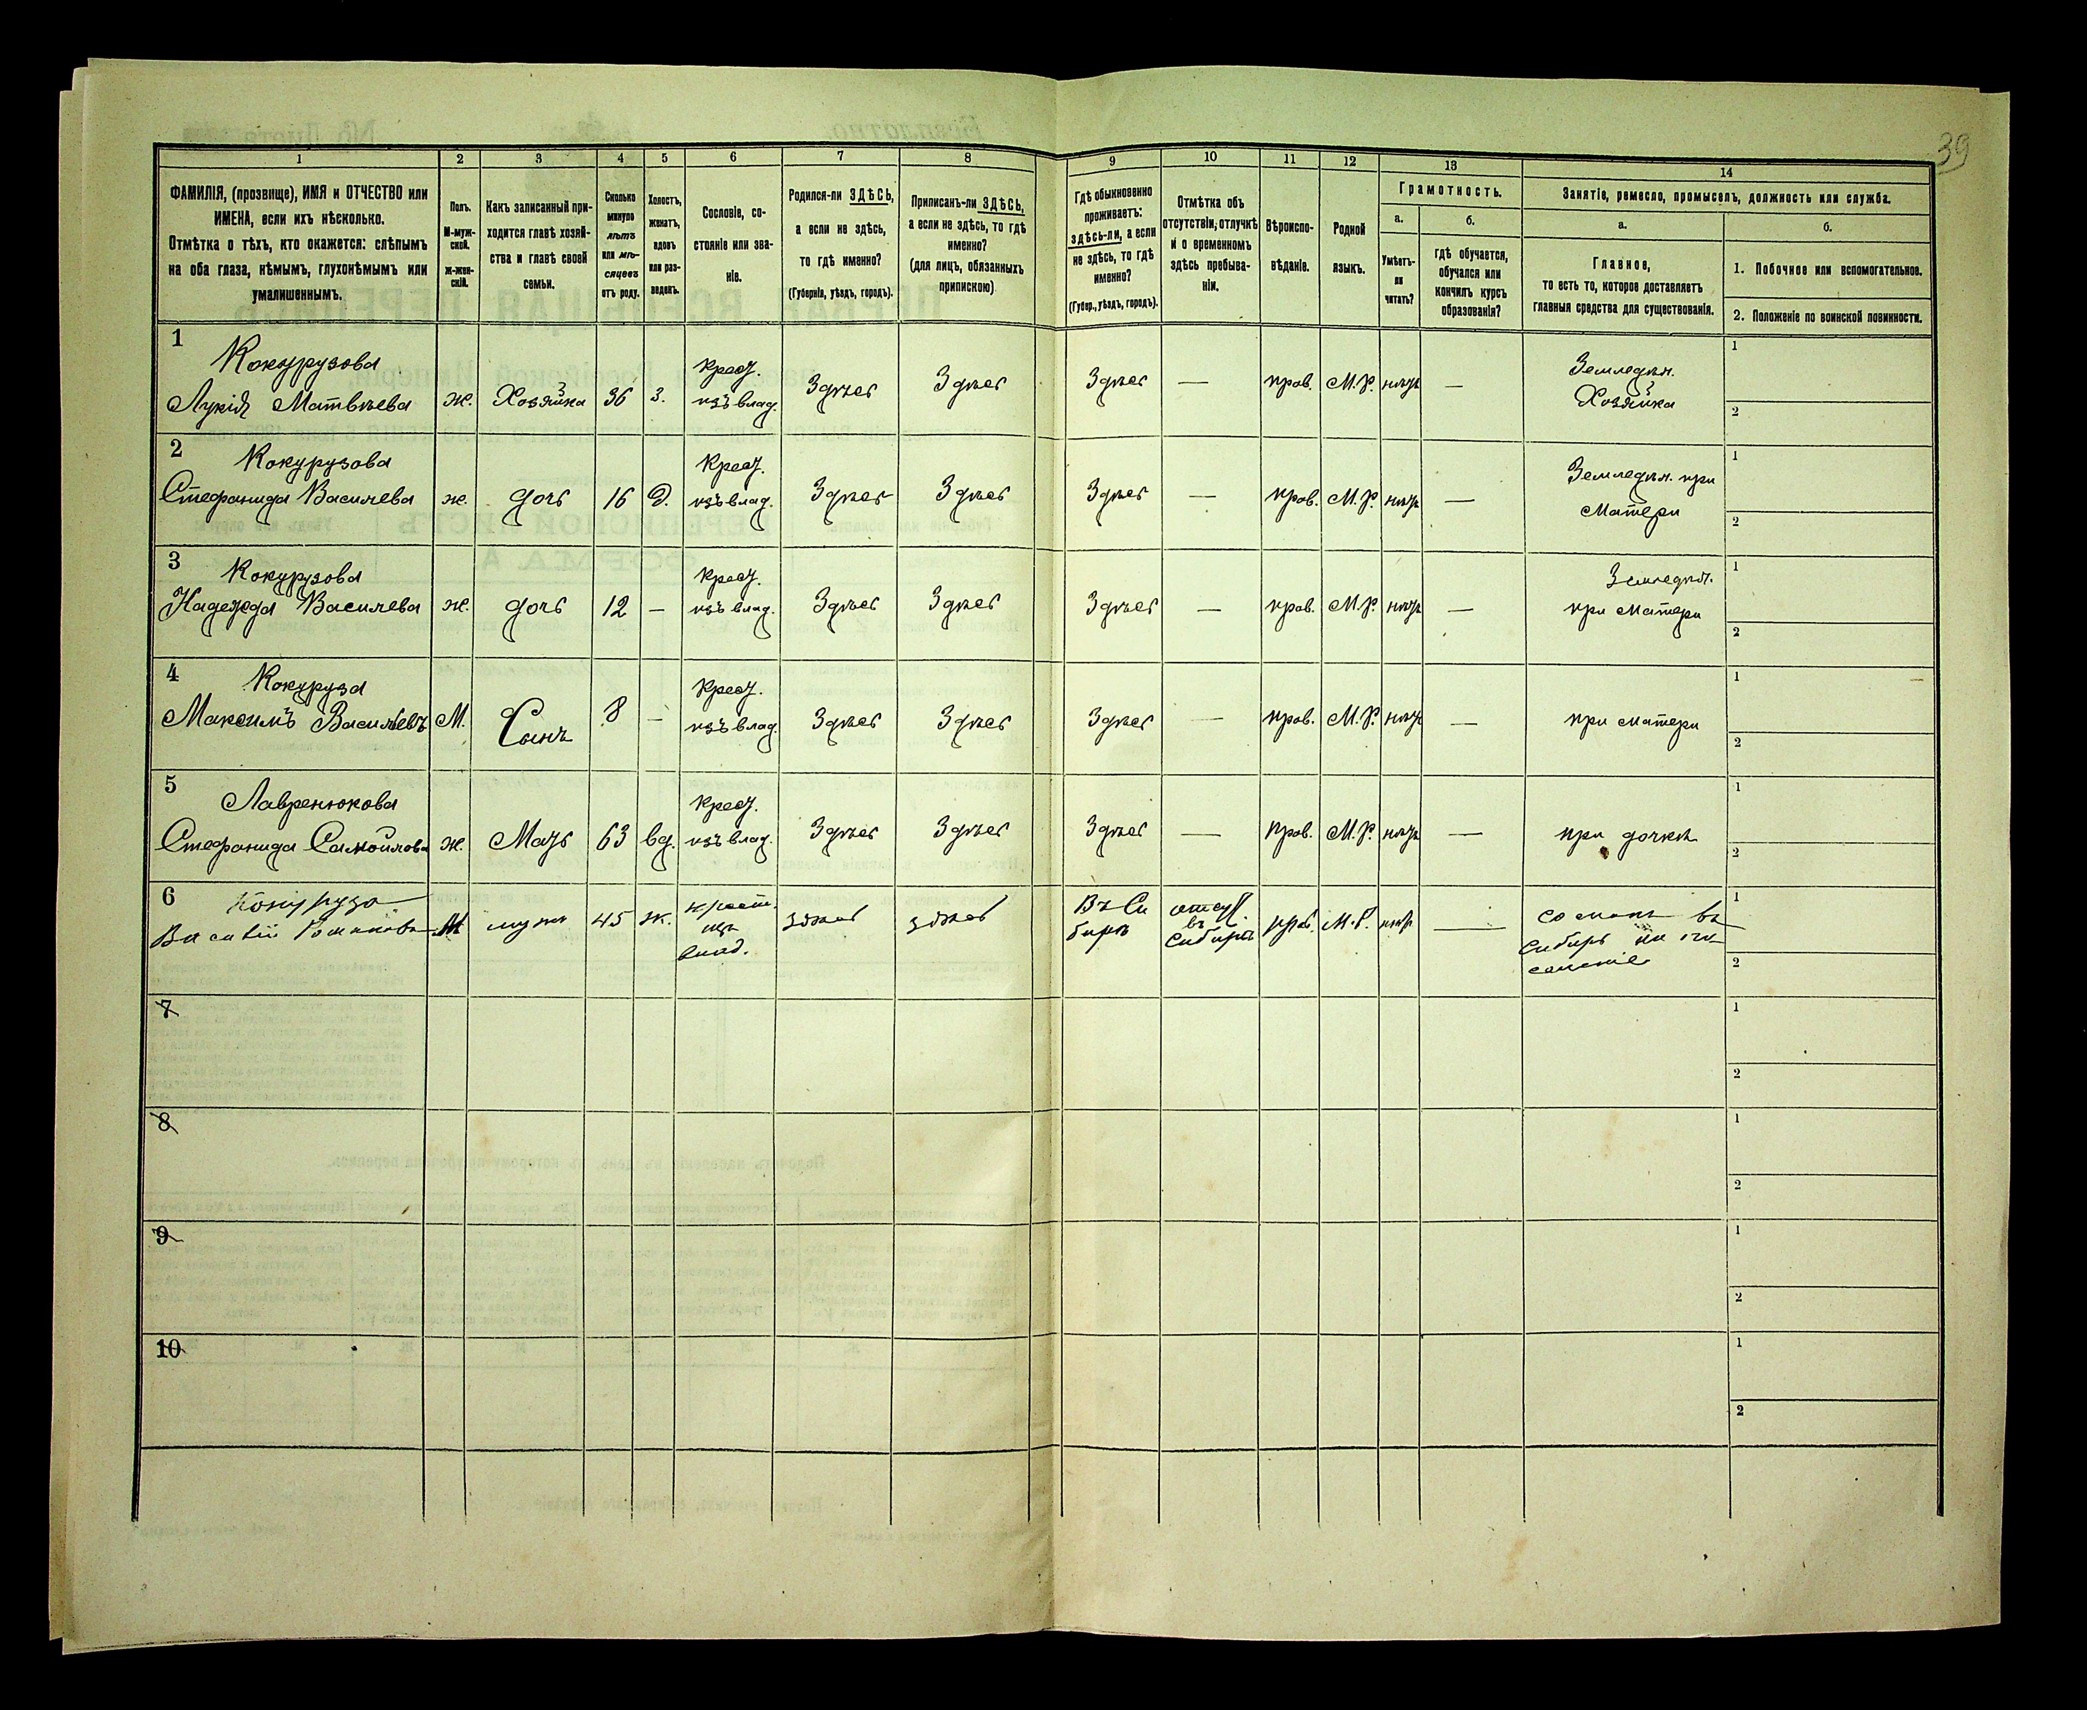 39
1 2 3 4 5 6 7 8 9 10 11 12 13 14
ФАМИЛІЯ, (прозвище), ИМЯ и ОТЧЕСТВО или
ИМЕНА, если ихъ нѣсколько.
Отмѣтка о тѣхъ, кто окажется: слѣпымъ
на оба глаза, нѣмымъ, глухонѣмымъ или
умалишеннымъ.
Полъ.
М-муж-
ской.
Ж-жен-
скій.
Какъ записанный при-
ходится главѣ хозяй-
ства и главѣ своей
семьи.
Сколько
минуло
лѣтъ
или мѣ-
сяцевъ
отъ роду.
Холостъ,
женатъ,
вдовъ
или раз-
веденъ.
Сословіе, со-
стояніе или зва-
ніе.
Родился-ли ЗДѢСЬ,
а если не здѣсь,
то гдѣ именно?
(Губернія, уѣздъ, городъ).
Приписанъ-ли ЗДѢСЬ,
а если не здѣсь, то гдѣ
именно?
(для лицъ, обязанныхъ
припискою)
Гдѣ обыкновенно
проживаетъ:
здѣсь-ли, а если
не здѣсь, то гдѣ
именно?
(Губер., уѣздъ, городъ).
Отмѣтка объ
отсутствіи, отлучкѣ
и о временномъ
здѣсь пребыва-
ніи.
Вѣроиспо-
вѣданіе.
Родной
языкъ.
Грамотность.
а.
Умѣетъ-
ли
читать?
б.
гдѣ обучается,
обучался или
кончилъ курсъ
образованія?
Занятіе, ремесло, промыселъ, должность или служба.
а.
Главное,
то есть то, которое доставляетъ
главныя средства для существованія.
б.
1. Побочное или вспомогательное.
2. Положеніе по воинской повинности.
1
Кокурузова Крест. Земледѣл. 1
Лукія Матвѣева ж. Хозяйка 36 з. изъ влад. Здѣсь Здѣсь Здѣсь — прав. М.Р. нѣтъ — Хозяйка 2
2
Кокурузова Крест. Земледѣл. при 1
Стефанида Василева ж. дочь 16 д. изъ влад. Здѣсь Здѣсь Здѣсь — прав. М.Р. нѣтъ — Матери 2
3
Кокурузова Крест. Земледѣл. 1
Надежда Василева ж. дочь 12 — изъ влад. Здѣсь Здѣсь Здѣсь — прав. М.Р. нѣтъ — при Матери 2
4
Кокуруза Крест. 1
Максимъ Васильевъ М. Сынъ 8 — изъ влад. Здѣсь Здѣсь Здѣсь — прав. М.Р. нѣтъ — при матери 2
5
Лавренюкова Крест. 1
Стефанида Самойлова ж. Мать 63 вд. изъ влад. Здѣсь Здѣсь Здѣсь — прав. М.Р. нѣтъ — при дочкѣ 2
6
Кокуруза крест. Въ Си отсут. 1
Василій Романовъ М мужъ 45 ж. изъ здѣсь здѣсь бирѣ въ прав. М.Р. нѣтъ — въ
влад. Сибирѣ Сибирь на по-
селеніе 2
7 1
2
8 1
2
9 1
2
10 1
2